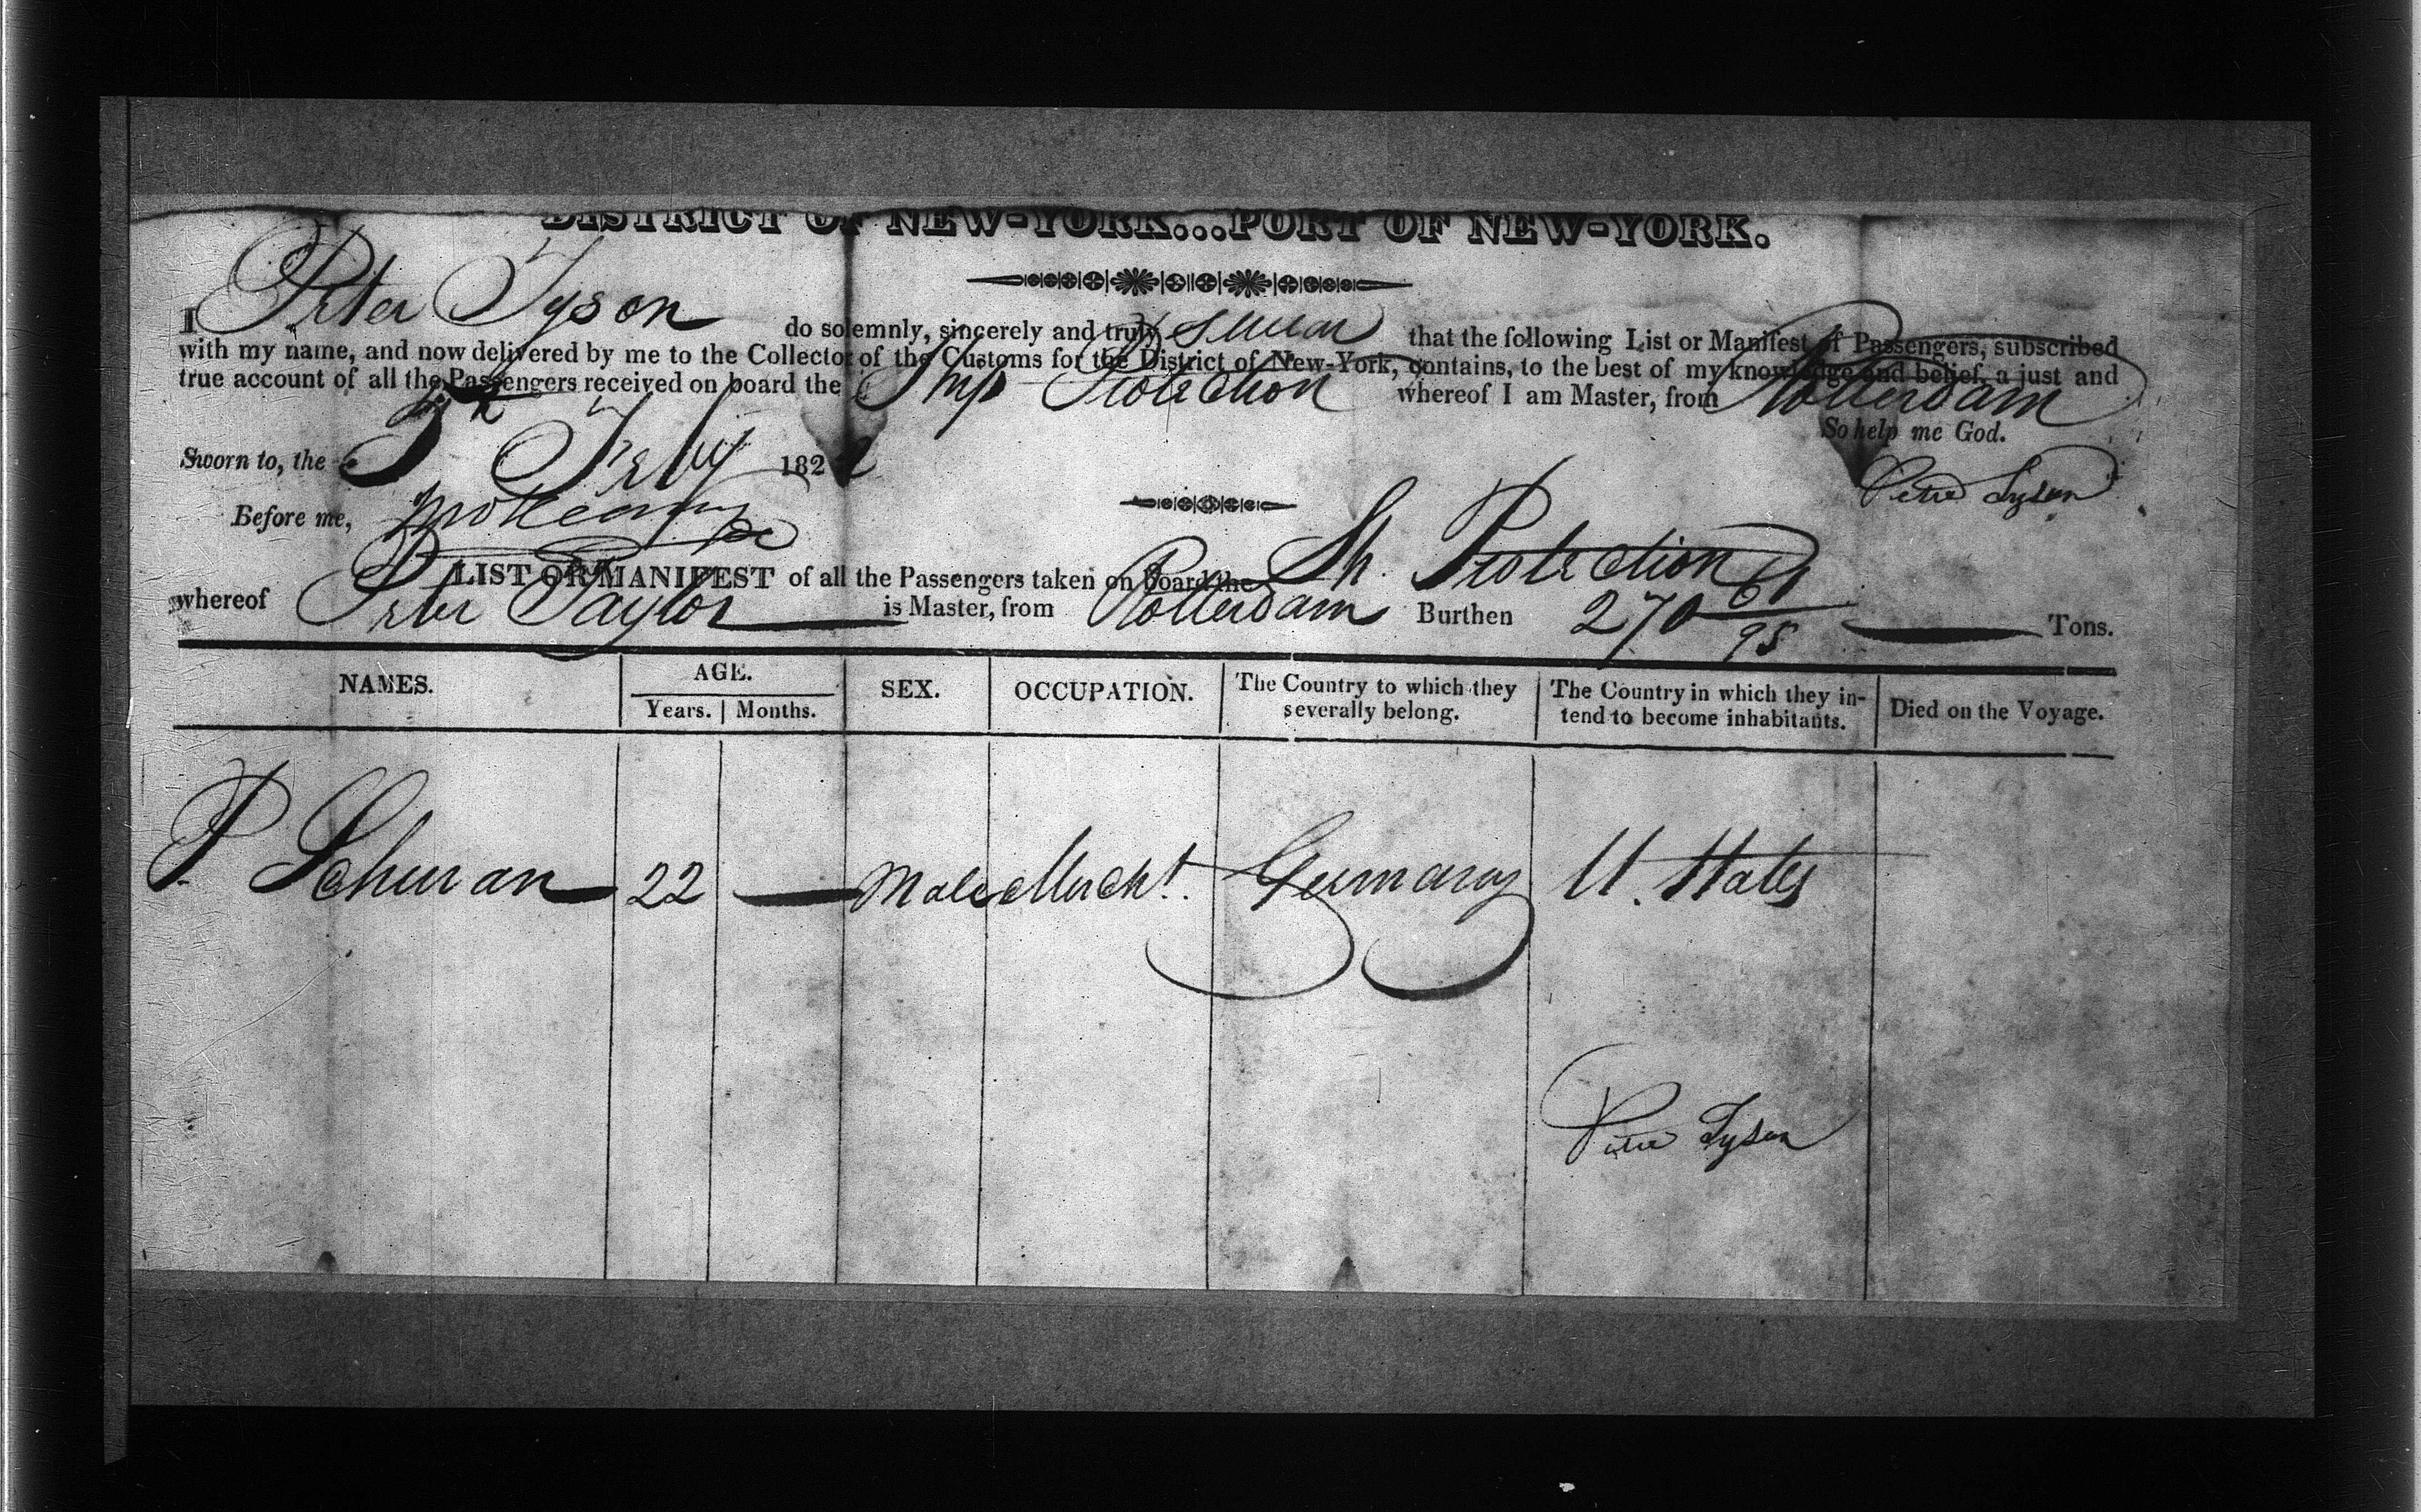 DISTRICT OF NEW-YORK...PORT OF NEW-YORK.
I Peter Tyson do solemnly, sincerely and truly swear that the following List or Manifest of Passengers, subscribed
with my name, and now delivered by me to the Collector of the Customs for the District of New-York, contains, to the best of my knowledge and belief, a just and
true account of all the Passengers received on board the Ship Protection whereof I am Master, from Rotterdam
So help me God.
Sworn to, the 5th Feby 1822
Peter Tyson
Before me,
LIST OR MANIFEST of all the Passengers taken on board the Sh. Protection
whereof Peter Taylor is Master, from Rotterdam Burthen 270 61/95 Tons.
NAMES. AGE. SEX. OCCUPATION. The Country to which they severally belong. The Country in which they in-tend to become inhabitants. Died on the Voyage.
Years. Months.
P Schuran 22 Male Mercht. Germany U. States
Peter Tyson